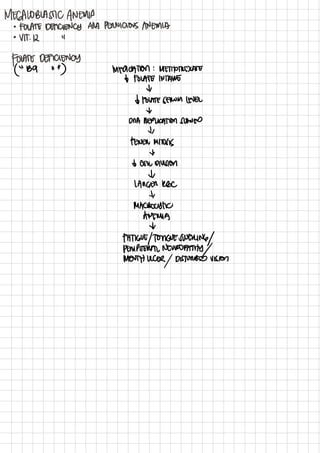 MEGALOBLASTIC ANEMIA
• FOLATE DEFICIENCY AKA PERNICIOUS ANEMIA
• VIT. 12 "
FOLATE DEFICIENCY
(" B9 " ")
MEDICATION: METHOTREXATE
↓ FOLATE INTAKE
↓
↓ FOLATE SERUM LEVEL
↓
DNA REPLICATION SLOWED
↓
FEWER MITOSIS
↓
↓ CELL DIVISION
↓
LARGER RBC
↓
MACROCYTIC
ANEMIA
↓
FATIGUE / TONGUE SWELLING /
PERIPHERAL NEUROPATHY /
MOUTH ULCER / DISTURBED VISION